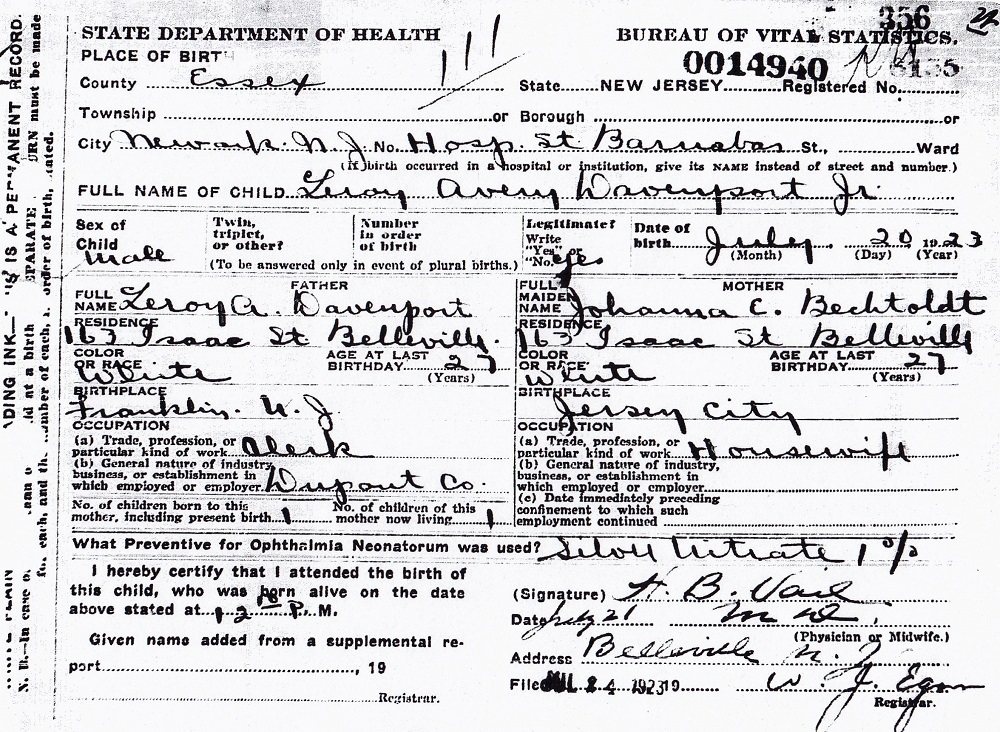 356
STATE DEPARTMENT OF HEALTH BUREAU OF VITAL STATISTICS.
PLACE OF BIRTH 111 0014940
County Essex State NEW JERSEY Registered No.
Township or Borough or
City Newark. N. J. No. Hosp. St Barnabas St., Ward
(If birth occurred in a hospital or institution, give its NAME instead of street and number.)
FULL NAME OF CHILD Leroy Avery Davenport Jr.
Sex of Child male
Twin, triplet, or other?
Number in order of birth
(To be answered only in event of plural births.)
Legitimate? Write "Yes" or "No." yes
Date of birth July 20 1923
(Month) (Day) (Year)
FATHER
FULL NAME Leroy A. Davenport
RESIDENCE
163 Isaac St Belleville.
COLOR OR RACE White AGE AT LAST BIRTHDAY 27
(Years)
BIRTHPLACE
Franklin. N. J
OCCUPATION
(a) Trade, profession, or particular kind of work Clerk
(b) General nature of industry, business, or establishment in which employed or employer. Dupont Co.
No. of children born to this mother, including present birth 1
No. of children of this mother now living 1
MOTHER
FULL MAIDEN NAME Johanna C. Bechtoldt
RESIDENCE
163 Isaac St Belleville
COLOR OR RACE White AGE AT LAST BIRTHDAY 27
(Years)
BIRTHPLACE
Jersey City
OCCUPATION
(a) Trade, profession, or particular kind of work Housewife
(b) General nature of industry, business, or establishment in which employed or employer
(c) Date immediately preceding confinement to which such employment continued
What Preventive for Ophthalmia Neonatorum was used? Silver Nitrate 1 %
I hereby certify that I attended the birth of
this child, who was born alive on the date
above stated at P. M.
Given name added from a supplemental re-
port , 19
Registrar.
(Signature) H. B. Vail
Date July 21 M D.
(Physician or Midwife.)
Address Belleville N. J
Filed JUL 24 1923 19 W. J. Egan
Registrar.